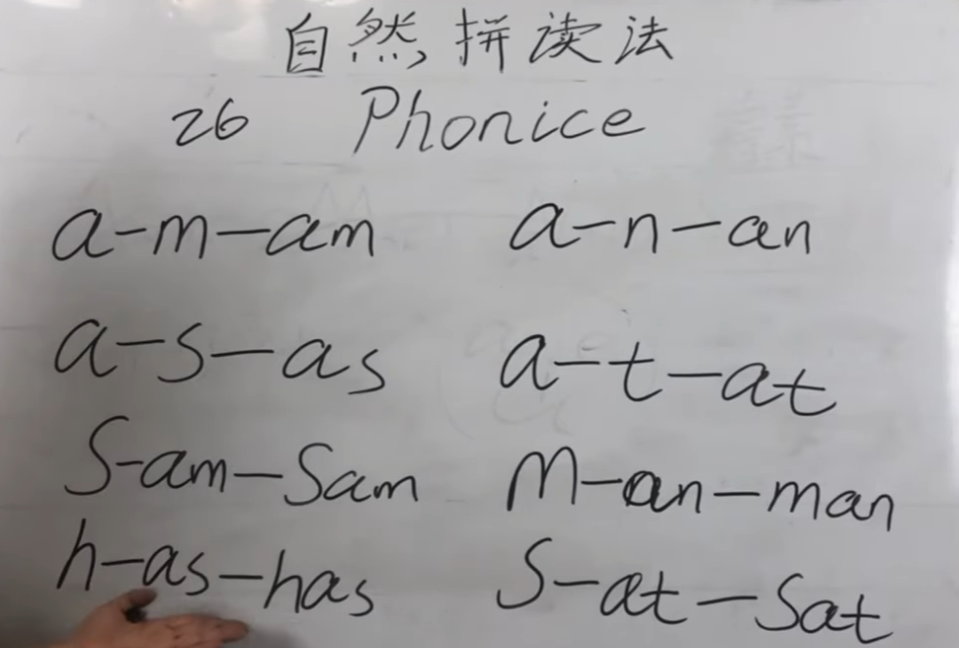 自然拼读法
26 Phonice
a-m-am a-n-an
a-s-as a-t-at
S-am-Sam M-an-man
h-as-has S-at-Sat